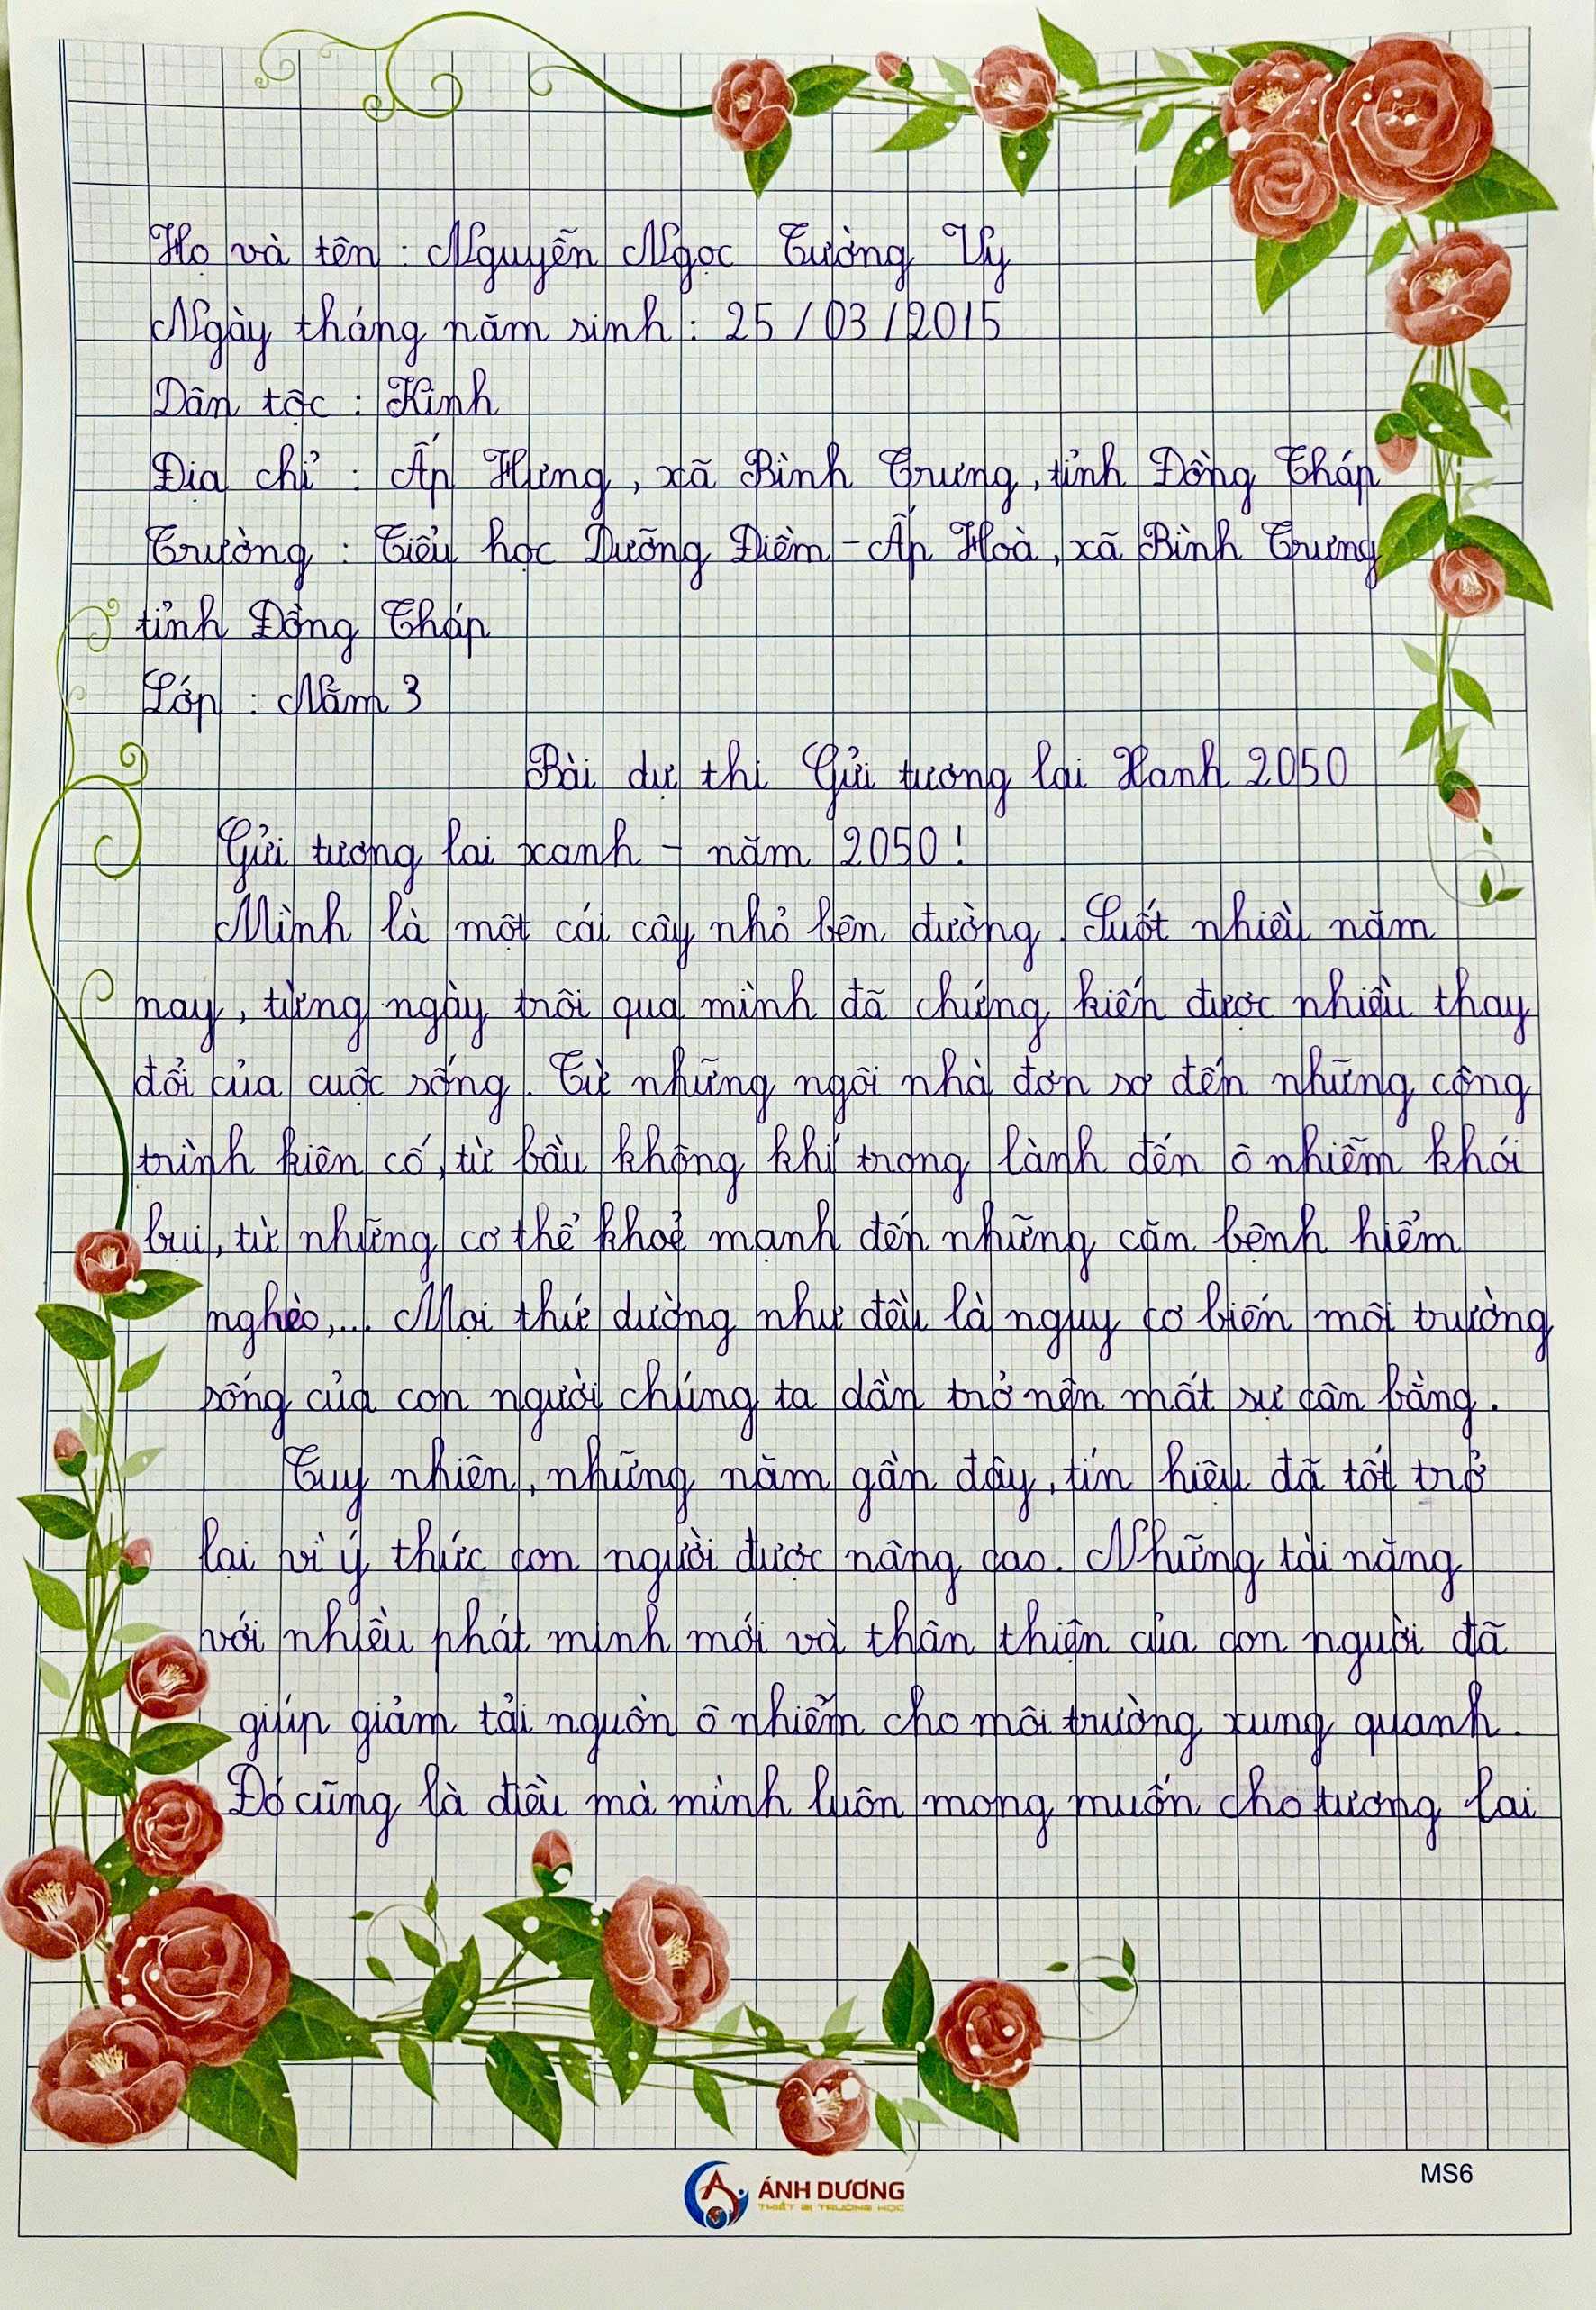 Họ và tên : Nguyễn Ngọc Tường Vy
Ngày tháng năm sinh : 25 / 03 / 2015
Dân tộc : Kinh
Địa chỉ : Ấp Hưng, xã Bình Trưng, tỉnh Đồng Tháp
Trường : Tiểu học Dưỡng Điềm - Ấp Hoà, xã Bình Trưng
tỉnh Đồng Tháp
Lớp : Năm 3
Bài dự thi Gửi tương lai Xanh 2050
Gửi tương lai xanh - năm 2050!
Mình là một cái cây nhỏ bên đường. Suốt nhiều năm
nay, từng ngày trôi qua mình đã chứng kiến được nhiều thay
đổi của cuộc sống. Từ những ngôi nhà đơn sơ đến những công
trình kiên cố, từ bầu không khí trong lành đến ô nhiễm khói
bụi, từ những cơ thể khoẻ mạnh đến những căn bệnh hiểm
nghèo,... Mọi thứ dường như đều là nguy cơ biến môi trường
sống của con người chúng ta dần trở nên mất sự cân bằng.
Tuy nhiên, những năm gần đây, tín hiệu đã tốt trở
lại vì ý thức con người được nâng cao. Những tài năng
với nhiều phát minh mới và thân thiện của con người đã
giúp giảm tải nguồn ô nhiễm cho môi trường xung quanh.
Đó cũng là điều mà mình luôn mong muốn cho tương lai
ÁNH DƯƠNG
THIẾT BỊ TRƯỜNG HỌC
MS6